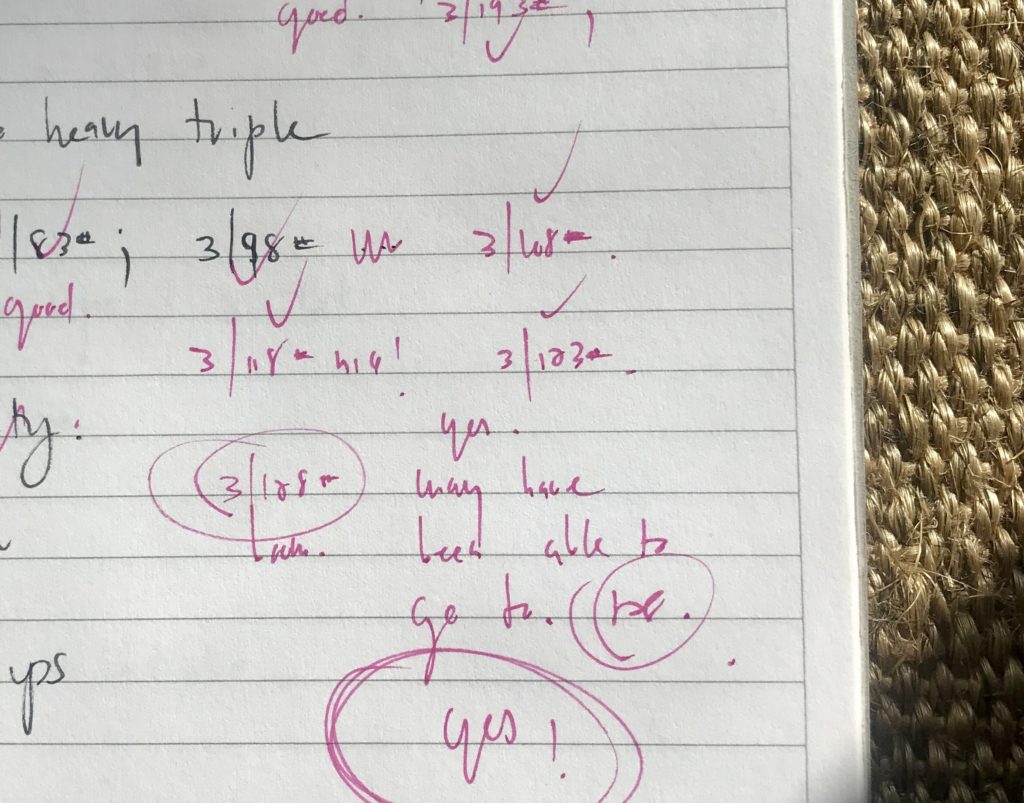 good. 3/193#;
heavy triple
/83#; 3/98# 3/108#.
good.
3/118# 3/123#.
ty: yes.
3/128# may have
been able to
go to.
ups
yes!